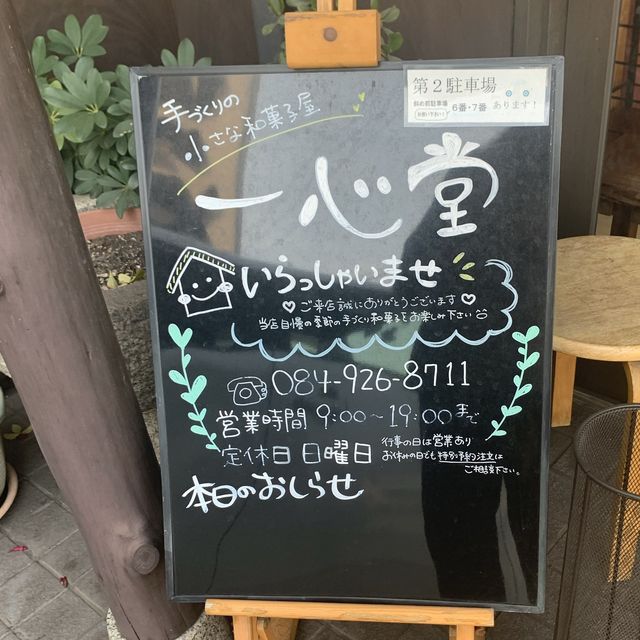 手づくりの
小さな和菓子屋
第2駐車場
斜め前駐車場
6番・7番 あります!
一心堂
いらっしゃいませ
ご来店誠にありがとうございます
当店自慢の季節の手づくり和菓子をお楽しみ下さい
084-926-8711
営業時間 9:00~19:00まで
定休日 日曜日
行事の日は営業あり
お休みの日でも特別予約注文は
ご相談下さい。
本日のおしらせ